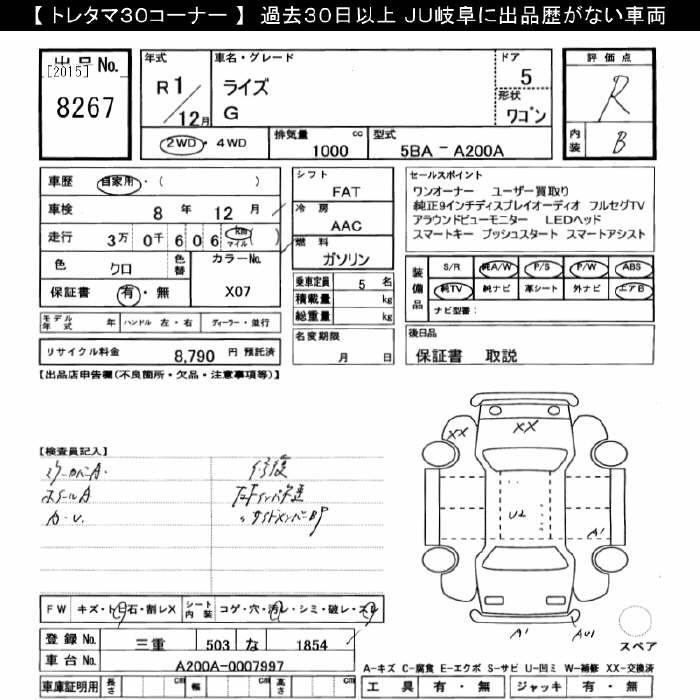 【 トレタマ30コーナー 】 過去30日以上 JU岐阜に出品歴がない車両
出品 No.
[2015]
8267
年式
R1/12月
車名・グレード
ライズ
G
ドア
5
形状
ワゴン
評価点
R
内装
B
2WD・4WD
排気量 cc
1000
型式
5BA - A200A
車歴 自家用・( )
車検 8 年 12 月
走行 3万 0千 6 0 6 km マイル ( )
色 クロ
色替
カラーNo.
X07
保証書 有・無
シフト
FAT
冷房
AAC
燃料
ガソリン
乗車定員 5 名
積載量 kg
総重量 kg
セールスポイント
ワンオーナー ユーザー買取り
純正9インチディスプレイオーディオ フルセグTV
アラウンドビューモニター LEDヘッド
スマートキー プッシュスタート スマートアシスト
装備品
S/R 純A/W P/S P/W ABS
純TV 純ナビ 革シート 外ナビ エアB
ナビ型番:
モデル年式 年 ハンドル 左・右 ディーラー・並行
リサイクル料金 8,790 円 預託済
名変期限
月 日
後日品
保証書 取説
【出品店申告欄(不良箇所・欠品・注意事項等)】
【検査員記入】
ミラーカバーA.
ホイールA
A・U.
修復
XX
XX
U2
A1
A1
AU1
FW キズ・トビ石・割レX
シート内装 コゲ・穴・汚レ・シミ・破レ・スレ
登録 No. 三重 503 な 1854
車台 No. A200A-0007997
車庫証明用 長さ cm 幅 cm 高さ cm
スペア
A-キズ C-腐食 E-エクボ S-サビ U-凹ミ W-補修 XX-交換済
工具 有・無 ジャッキ 有・無